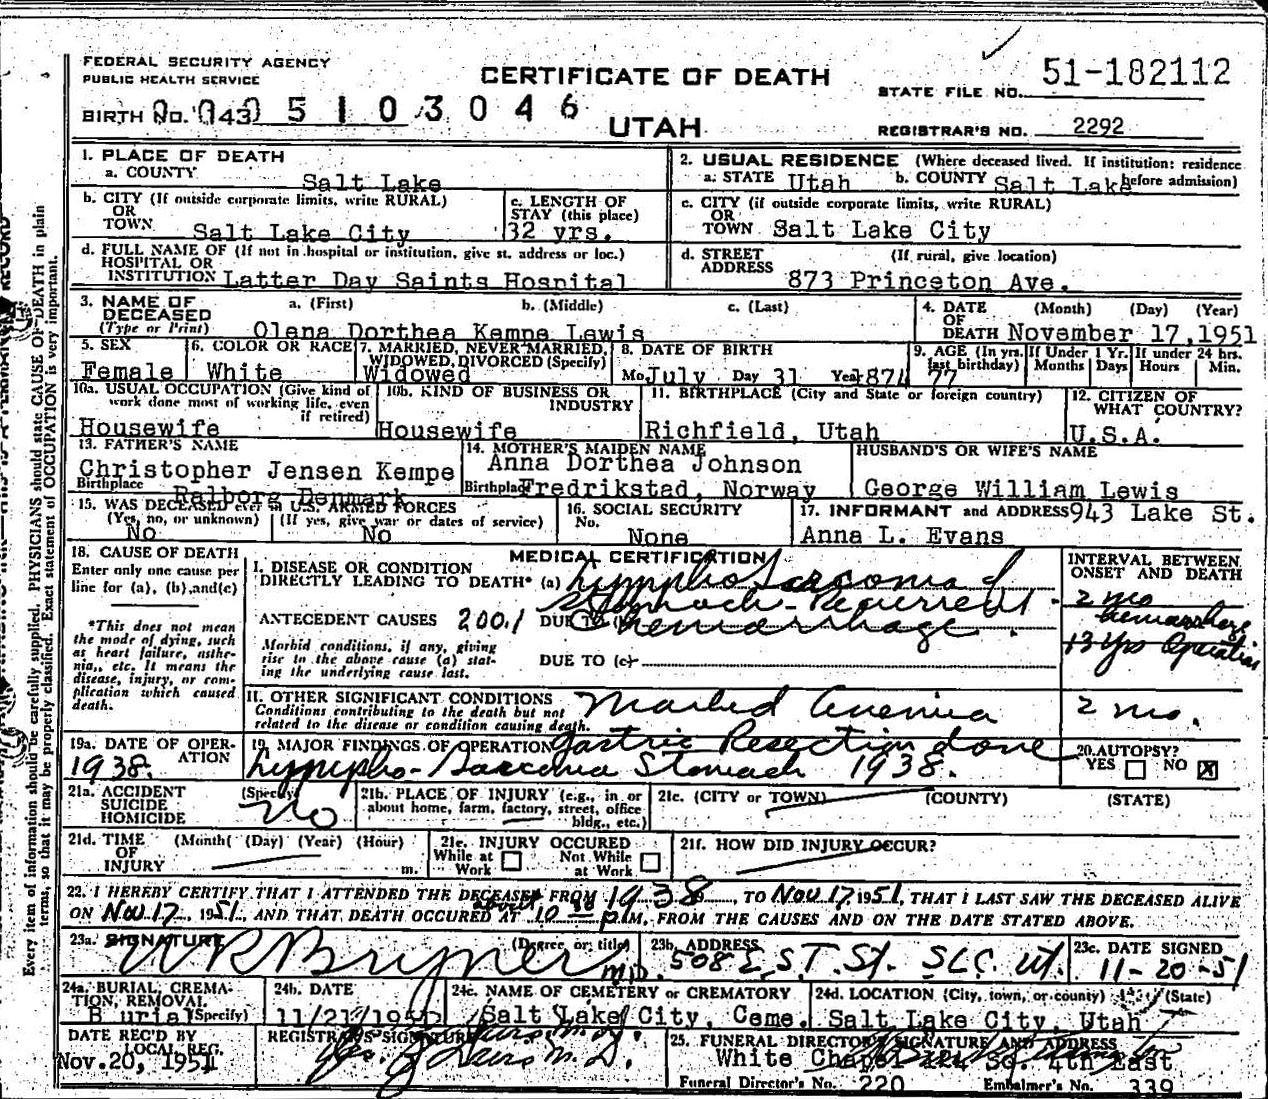 FEDERAL SECURITY AGENCY
PUBLIC HEALTH SERVICE
CERTIFICATE OF DEATH
UTAH
STATE FILE NO. 51-182112
BIRTH NO. 043 5 1 0 3 0 4 6
REGISTRAR'S NO. 2292
1. PLACE OF DEATH
a. COUNTY
Salt Lake
2. USUAL RESIDENCE (Where deceased lived. If institution: residence before admission)
a. STATE Utah b. COUNTY Salt Lake
b. CITY (If outside corporate limits, write RURAL)
OR
TOWN Salt Lake City
c. LENGTH OF
STAY (this place)
32 yrs.
c. CITY (if outside corporate limits, write RURAL)
OR
TOWN Salt Lake City
d. FULL NAME OF (If not in hospital or institution, give st. address or loc.)
HOSPITAL OR
INSTITUTION Latter Day Saints Hospital
d. STREET (If rural, give location)
ADDRESS 873 Princeton Ave.
3. NAME OF a. (First) b. (Middle) c. (Last)
DECEASED
(Type or Print) Olena Dorthea Kempe Lewis
4. DATE (Month) (Day) (Year)
OF
DEATH November 17, 1951
5. SEX
Female
6. COLOR OR RACE
White
7. MARRIED, NEVER MARRIED,
WIDOWED, DIVORCED (Specify)
Widowed
8. DATE OF BIRTH
Mo. July Day 31 Year 1874
9. AGE (In yrs. last birthday) 77
If Under 1 Yr. Months Days
If under 24 hrs. Hours Min.
10a. USUAL OCCUPATION (Give kind of
work done most of working life, even
if retired)
Housewife
10b. KIND OF BUSINESS OR
INDUSTRY
Housewife
11. BIRTHPLACE (City and State or foreign country)
Richfield, Utah
12. CITIZEN OF
WHAT COUNTRY?
U.S.A.
13. FATHER'S NAME
Christopher Jensen Kempe
Birthplace Denmark
14. MOTHER'S MAIDEN NAME
Anna Dorthea Johnson
Birthplace Fredrikstad, Norway
HUSBAND'S OR WIFE'S NAME
George William Lewis
15. WAS DECEASED ever in U.S. ARMED FORCES
(Yes, no, or unknown) (If yes, give war or dates of service)
No No
16. SOCIAL SECURITY
No.
None
17. INFORMANT and ADDRESS 943 Lake St.
Anna L. Evans
18. CAUSE OF DEATH
Enter only one cause per
line for (a), (b), and (c)
*This does not mean
the mode of dying, such
as heart failure, asthe-
nia, etc. It means the
disease, injury, or com-
plication which caused
death.
MEDICAL CERTIFICATION
I. DISEASE OR CONDITION
DIRECTLY LEADING TO DEATH* (a) Lympho Sarcoma of
Stomach - Recurrent
ANTECEDENT CAUSES 200.1 DUE TO (b) hemorrhage.
Morbid conditions, if any, giving
rise to the above cause (a) stat-
ing the underlying cause last.
DUE TO (c)
INTERVAL BETWEEN
ONSET AND DEATH
2 mo
hemorrhage
13 yrs Operation
II. OTHER SIGNIFICANT CONDITIONS
Conditions contributing to the death but not
related to the disease or condition causing death.
Marked Anemia
2 mo.
19a. DATE OF OPER-
ATION
1938.
19. MAJOR FINDINGS OF OPERATION Gastric Resection done
Lympho-Sarcoma Stomach 1938.
20. AUTOPSY?
YES NO X
21a. ACCIDENT (Specify)
SUICIDE
HOMICIDE
No
21b. PLACE OF INJURY (e.g., in or
about home, farm, factory, street, office
bldg., etc.)
21c. (CITY or TOWN) (COUNTY) (STATE)
21d. TIME (Month) (Day) (Year) (Hour)
OF
INJURY m.
21e. INJURY OCCURED
While at Work Not While at Work
21f. HOW DID INJURY OCCUR?
22. I HEREBY CERTIFY THAT I ATTENDED THE DECEASED FROM 1938, TO Nov. 17, 1951, THAT I LAST SAW THE DECEASED ALIVE
ON Nov. 17, 1951, AND THAT DEATH OCCURED AT 10 P.M., FROM THE CAUSES AND ON THE DATE STATED ABOVE.
23a. SIGNATURE (Degree or title)
W R Brymer M.D.
23b. ADDRESS
508 E. S. T. St. SLC. Ut.
23c. DATE SIGNED
11-20-51
24a. BURIAL, CREMA-
TION, REMOVAL
Burial (Specify)
24b. DATE
11/21/1951
24c. NAME OF CEMETERY or CREMATORY
Salt Lake City, Ceme.
24d. LOCATION (City, town, or county) (State)
Salt Lake City, Utah
DATE REC'D BY
LOCAL REG.
Nov. 20, 1951
REGISTRAR'S SIGNATURE
M. D.
25. FUNERAL DIRECTOR'S SIGNATURE AND ADDRESS
White Chapel 124 So. 4th East
Funeral Director's No. 220 Embalmer's No. 339
Every item of information should be carefully supplied. PHYSICIANS should state CAUSE OF DEATH in plain
terms, so that it may be properly classified. Exact statement of OCCUPATION is very important.